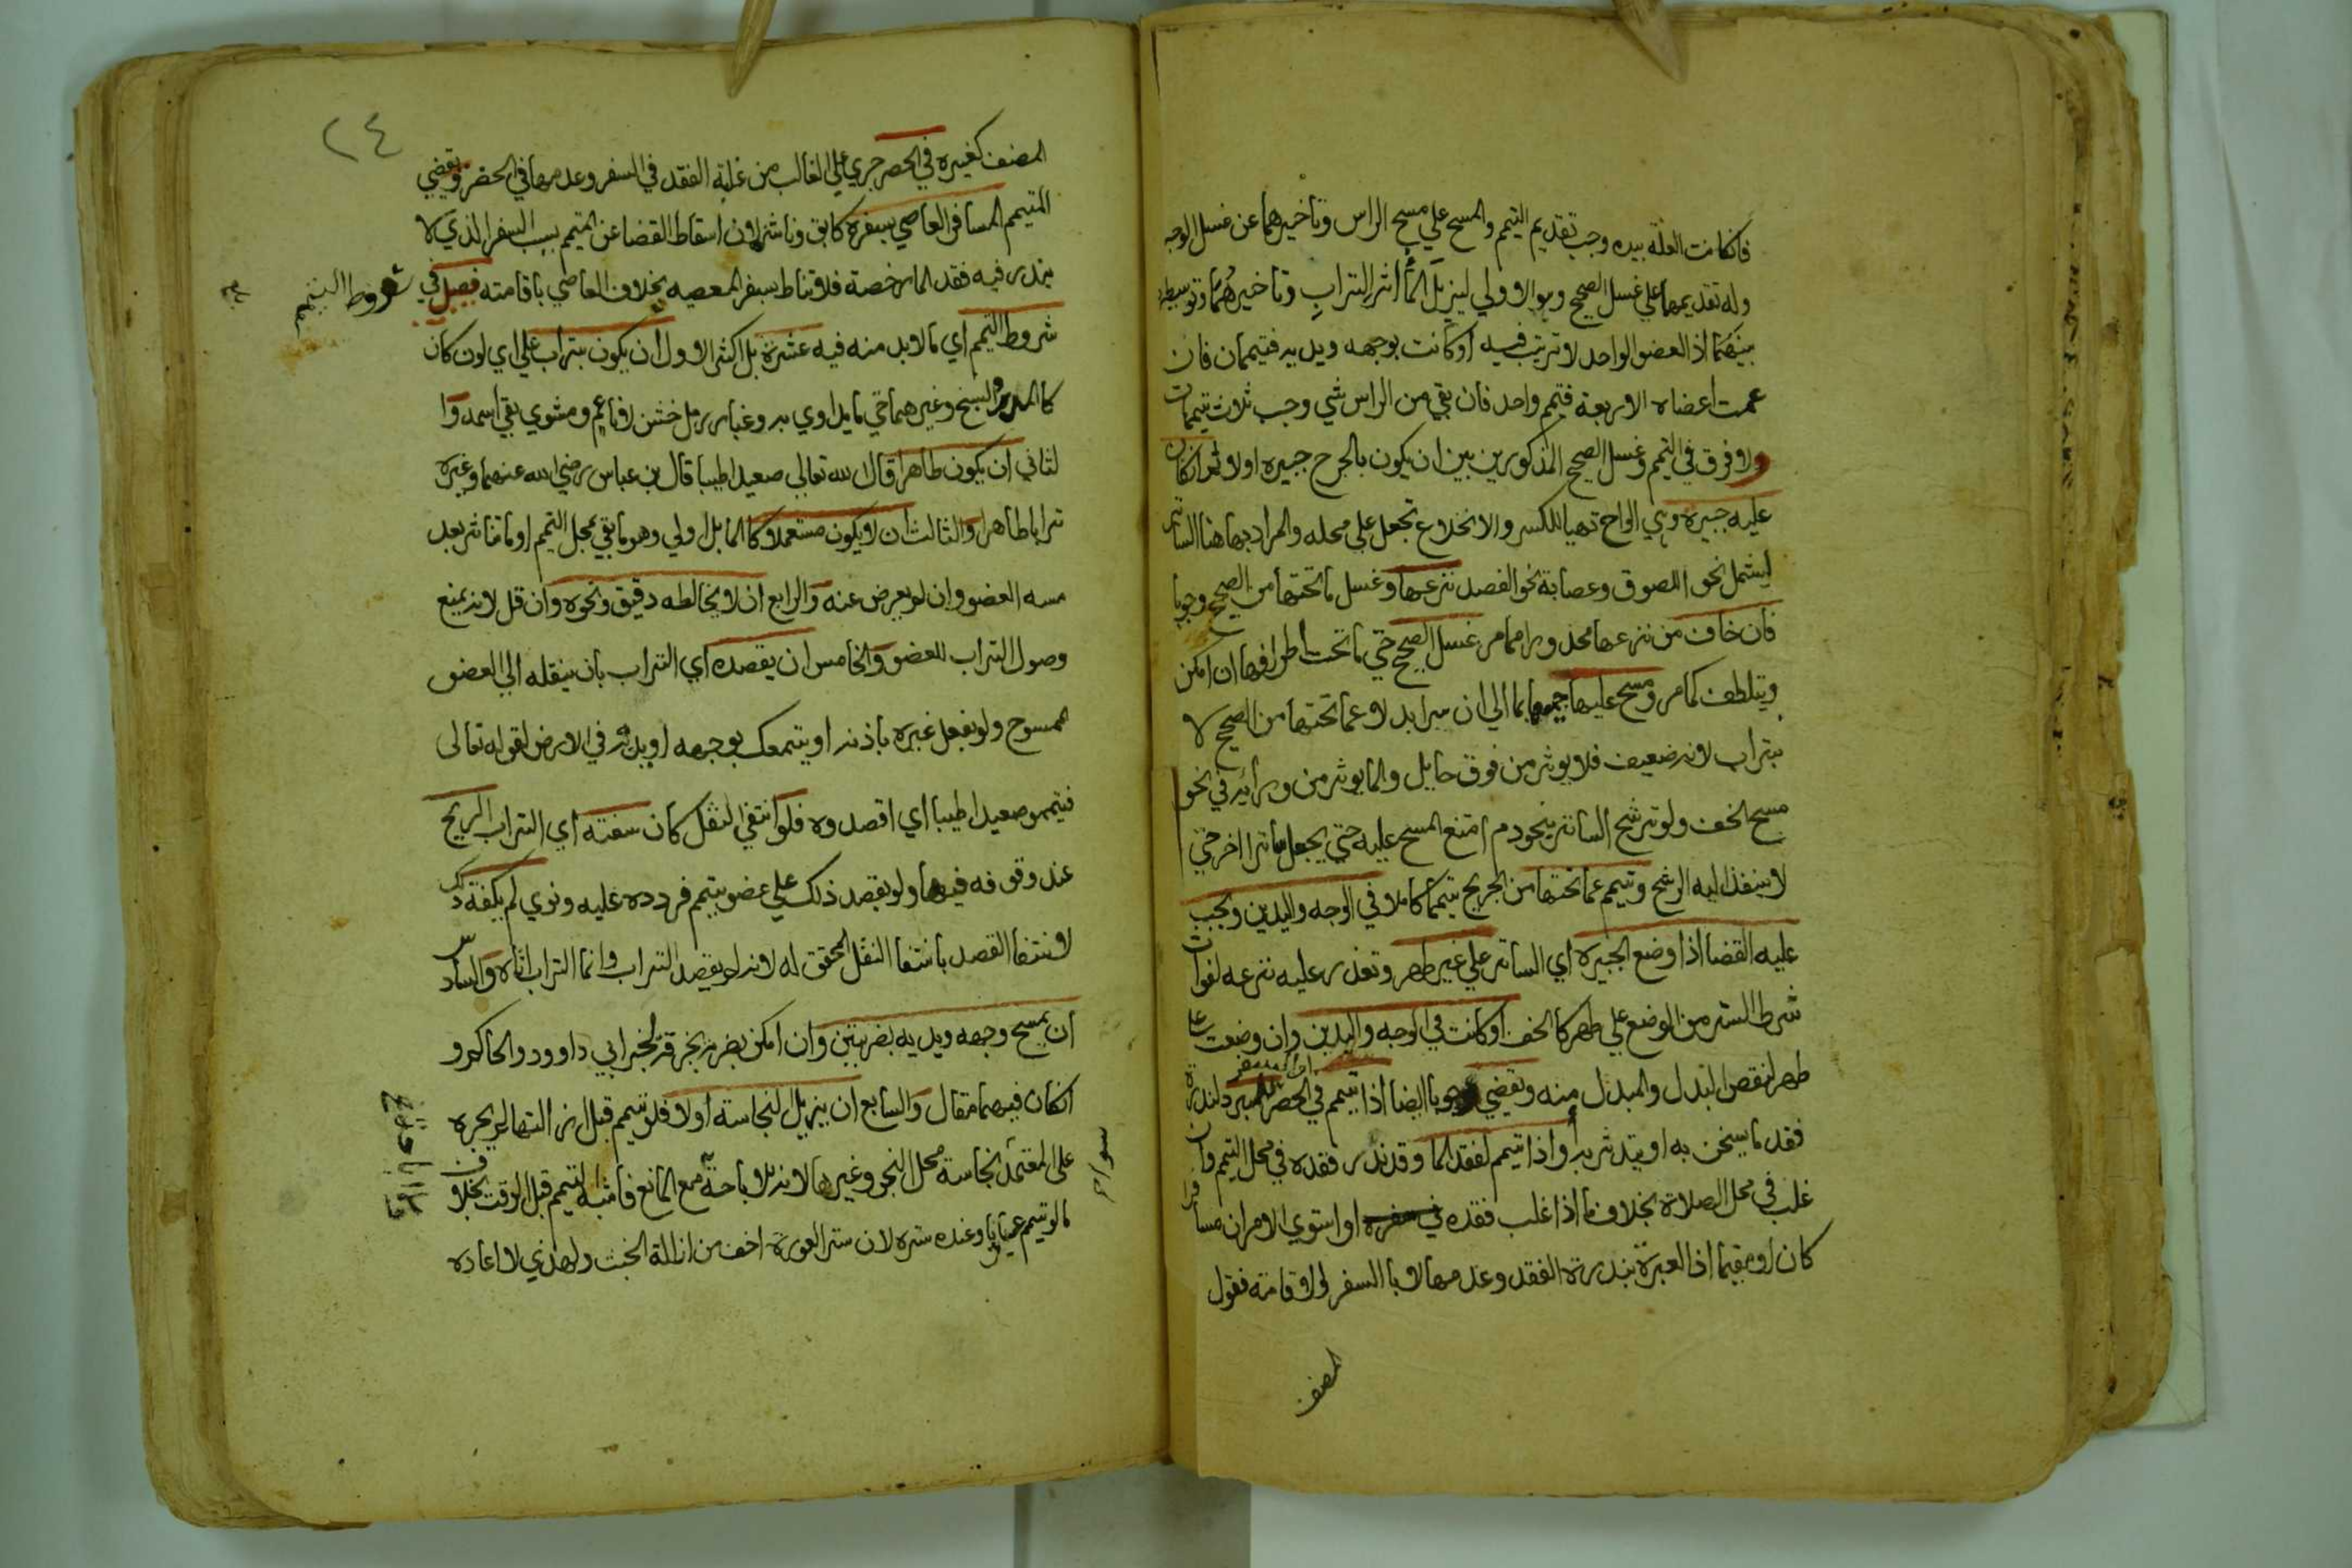 فانكانت العلة بيده وجب تقديم التيمم والمسح علي مسح الراس وتاخيرهما عن غسل الوجه
وله تقديمهما علي غسل الصحيح وهو الاولي ليزيل المأ اثر التراب وتاخيرهما وتوسيطه
بينهما اذ العضو الواحد لا ترتيب فيه اوكانت بوجهه ويديه فتيممان فان
عمت اعضاه الاربعة فتيمم واحد فان بقي من الراس شي وجب ثلاث تيممات
ولا فرق في التيمم وغسل الصحيح المذكورين بين ان يكون بالجرح جبيره اولا ثم ان كان
عليه جبيره وهي الواح تهيا للكسر والانخلاع تجعل علي محله والمراد بها هنا الساتر
ليشمل نحو اللصوق وعصابة نحو الفصد نزعها وغسل ما تحتها من الصحيح وجوبا
فان خاف من نزعها محذورا مما مر غسل الصحيح حتي ما تحت اطرافها ان امكن
ويتلطف كما مر ومسح عليها جميعها بما الي ان يبرا بدلا عما تحتها من الصحيح لا
بتراب لانه ضعيف فلا يوثر من فوق حايل والما يوثر من ورائه في نحو
مسح الخف ولو ترشح الساتر بنحو دم امتنع المسح عليه حتي يجعل ساترا اخر حتي
لا ينفذ اليه الرشح وتيمم عما تحتها من الجريح تيمما كاملا في الوجه واليدين ويجب
عليه القضا اذا وضع الجبيره اي الساتر علي غير طهر وتعذر عليه نزعه لفوات
شرط الستر من الوضع علي طهر كالخف اوكانت في الوجه واليدين وان وضعت علي
طهر لنقص البدل والمبدل منه ويقضي وجوبا ايضا اذا تيمم في الحضر للبرد لندرة
فقد ما يسخن به او يتدثر به واذا تيمم لفقد الما وقد ندر فقده في محل التيمم وان
غلب في محل الصلاة بخلاف ما اذا غلب فقده او استوي الامران مسافرا
كان او مقيما اذ العبرة بندرة الفقد وعدمها لا بالسفر والاقامة فقول
المصنف
٢٤
المصنف كغيره في الحضر جري علي الغالب من غلبة الفقد في السفر وعدمها في الحضر ويقضي
المتيمم المسافر العاصي بسفره كابق وناشز لان اسقاط القضا عن المتيمم بسبب السفر الذي لا
يندر فيه فقد الما رخصة فلا تناط بسفر المعصيه بخلاف العاصي باقامته فصل في
شروط التيمم
شروط التيمم اي ما لا بد منه فيه عشرة بل اكثر الاول ان يكون بتراب علي اي لون كان
كالمدر والسبخ وغيرهما حتي ما يداوي به وغبار رمل خشن لا ناعم ومشوي بقي اسمه وا
لثاني ان يكون طاهرا قال الله تعالي صعيدا طيبا قال بن عباس رضي الله عنهما وغيره
ترابا طاهرا والثالث ان لا يكون مستعملا كالما بل اولي وهو ما بقي بمحل التيمم او ما تناثر بعد
مسه العضو وان لم يعرض عنه والرابع ان لا يخالطه دقيق ونحوه وان قل لانه يمنع
وصول التراب للعضو والخامس ان يقصده اي التراب بان ينقله الي العضو
الممسوح ولو بفعل غيره باذنه او يتمعك بوجهه او يديه في الارض لقوله تعالي
فتيمموا صعيدا طيبا اي اقصدوه فلو انتفي النقل كان سفته اي التراب الريح
عند وقوفه فيها ولو بقصد ذلك علي عضو تيمم فردده عليه ونوي لم يكفه ذلك
لانتفا القصد بانتفا النقل المحقق له لانه لم يقصد التراب وانما التراب اتاه والسادس
ان يمسح وجهه ويديه بضربتين وان امكن بضربة بخرقة لخبر ابي داوود والحاكم و
انكان فيهما مقال والسابع ان يزيل النجاسه اولا فلو تيمم قبل ازالتها لم يجزه
علي المعتمد نجاسة محل النجو وغيرها لانه للاباحة مع المانع فاشبه التيمم قبل الوقت بخلاف
ما لو تيمم عريانا وعنده ستره لان ستر العورة اخف من ازالة الخبث ولهذي لا اعاده